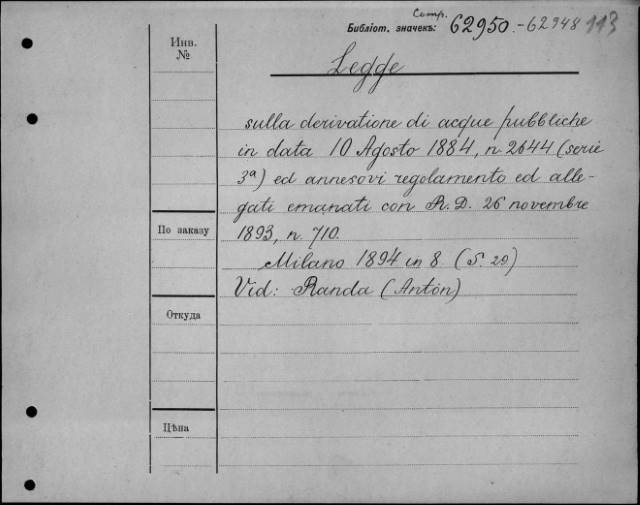 Comp.
Библіот. значекъ: 62950.-62948 113
Инв. №
Legge
sulla derivatione di acque pubbliche
in data 10 Agosto 1884, n. 2644 (serie
3ª) ed annesovi regolamento ed alle-
gati emanati con R. D. 26 novembre
1893, n. 710.
По заказу
Milano 1894 in 8. (S. 29)
Vid: Randa (Antón)
Откуда
Цѣна